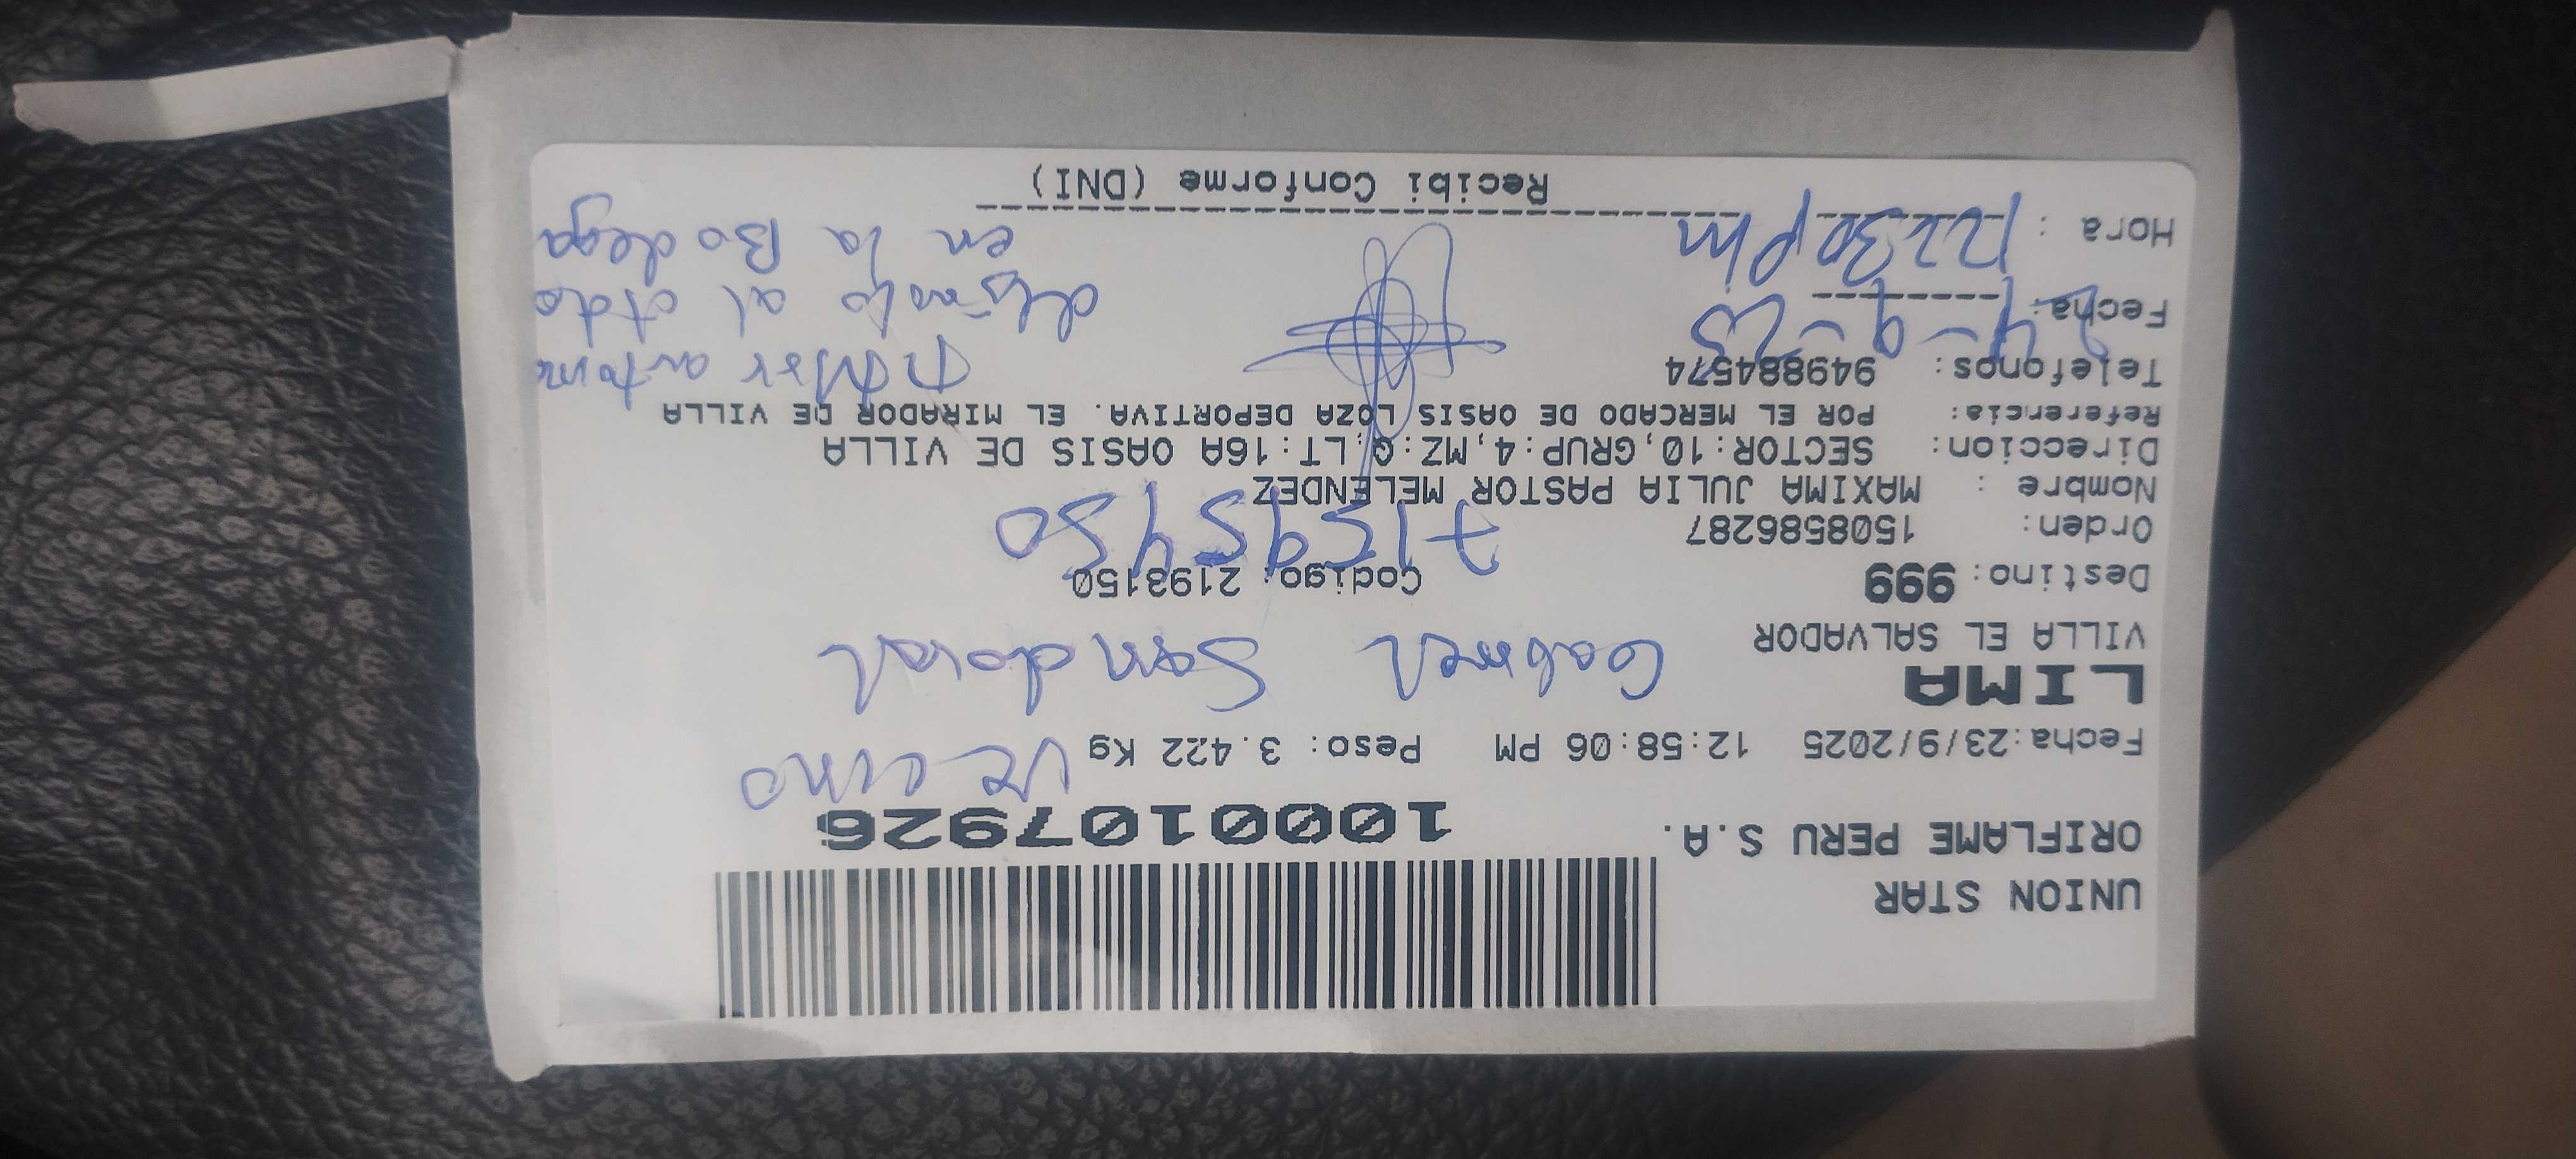 UNION STAR
ORIFLAME PERU S.A.
1000107926
Fecha:23/9/2025 12:58:06 PM Peso: 3.422 Kg
vecino
LIMA
VILLA EL SALVADOR
Gabriel Sandoval
Destino: 999 Codigo: 2193150
Orden: 1508586287
Nombre : MAXIMA JULIA PASTOR MELENDEZ
Direccion: SECTOR:10,GRUP:4,MZ:Q,LT:16A OASIS DE VILLA
Referencia: POR EL MERCADO DE OASIS LOZA DEPORTIVA. EL MIRADOR DE VILLA
Telefonos: 949884574
Fecha: 24-9-25
al ctdo
Hora : 12:30pm
en la Bodega
Recibi Conforme (DNI)